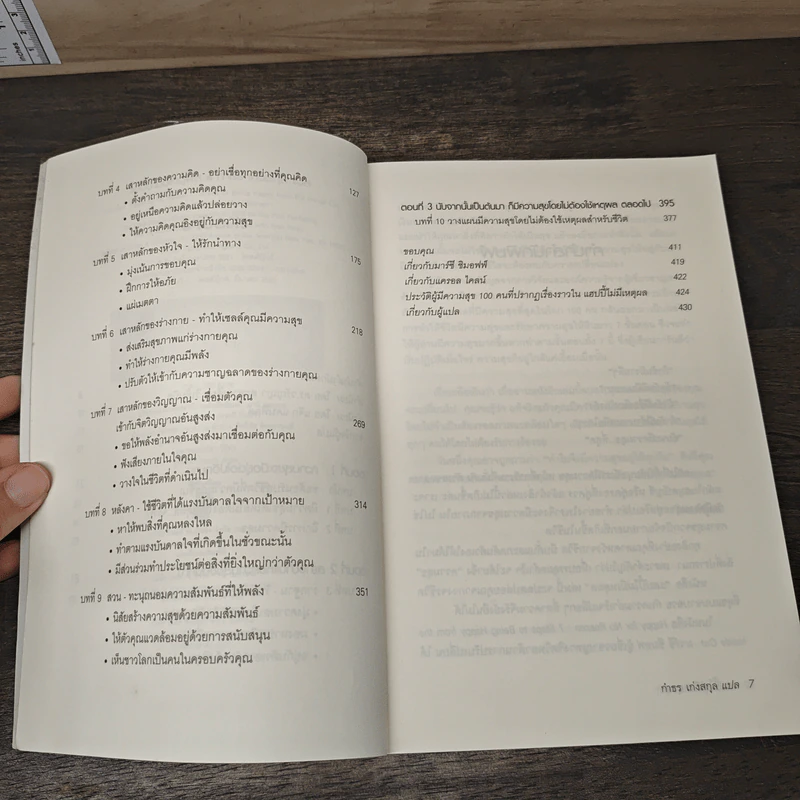 inches
บทที่ 4 เสาหลักของความคิด - อย่าเชื่อทุกอย่างที่คุณคิด 127
• ตั้งคำถามกับความคิดคุณ
• อยู่เหนือความคิดแล้วปล่อยวาง
• ให้ความคิดคุณอิงอยู่กับความสุข
บทที่ 5 เสาหลักของหัวใจ - ให้รักนำทาง 175
• มุ่งเน้นการขอบคุณ
• ฝึกการให้อภัย
• แผ่เมตตา
บทที่ 6 เสาหลักของร่างกาย - ทำให้เซลล์คุณมีความสุข 218
• ส่งเสริมสุขภาพแก่ร่างกายคุณ
• ทำให้ร่างกายคุณมีพลัง
• ปรับตัวให้เข้ากับความชาญฉลาดของร่างกายคุณ
บทที่ 7 เสาหลักของวิญญาณ - เชื่อมตัวคุณ
เข้ากับจิตวิญญาณอันสูงส่ง 269
• ขอให้พลังอำนาจอันสูงส่งมาเชื่อมต่อกับคุณ
• ฟังเสียงภายในใจคุณ
• วางใจในชีวิตที่ดำเนินไป
บทที่ 8 หลังคา - ใช้ชีวิตที่ได้แรงบันดาลใจจากเป้าหมาย 314
• หาให้พบสิ่งที่คุณหลงใหล
• ทำตามแรงบันดาลใจที่เกิดขึ้นในชั่วขณะนั้น
• มีส่วนร่วมทำประโยชน์ต่อสิ่งที่ยิ่งใหญ่กว่าตัวคุณ
บทที่ 9 สวน - ทะนุถนอมความสัมพันธ์ที่ให้พลัง 351
• นิสัยสร้างความสุขด้วยความสัมพันธ์
• ให้ตัวคุณแวดล้อมอยู่ด้วยการสนับสนุน
• เห็นชาวโลกเป็นคนในครอบครัวคุณ
ตอนที่ 3 นับจากนั้นเป็นต้นมา ก็มีความสุขโดยไม่ต้องใช้เหตุผล ตลอดไป 395
บทที่ 10 วางแผนมีความสุขโดยไม่ต้องใช้เหตุผลสำหรับชีวิต 377
ขอบคุณ 411
เกี่ยวกับมาร์ซี ชิมอฟฟ์ 419
เกี่ยวกับแครอล ไคลน์ 422
ประวัติผู้มีความสุข 100 คนที่ปรากฏเรื่องราวใน แฮปปี้ไม่มีเหตุผล 424
เกี่ยวกับผู้แปล 430
กำธร เก่งสกุล แปล 7